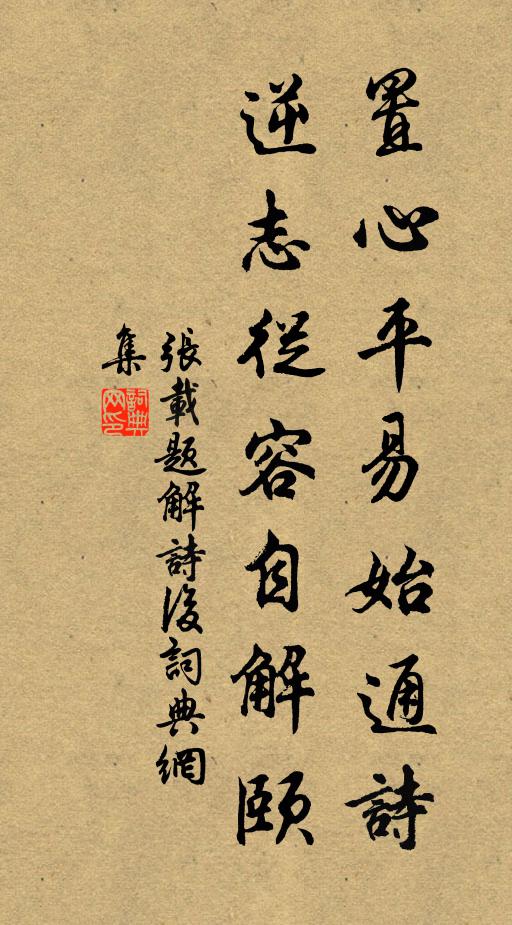 置心平易始通詩
逆志從容自解頤
張載題解詩後詞典網
集
詞典
网印